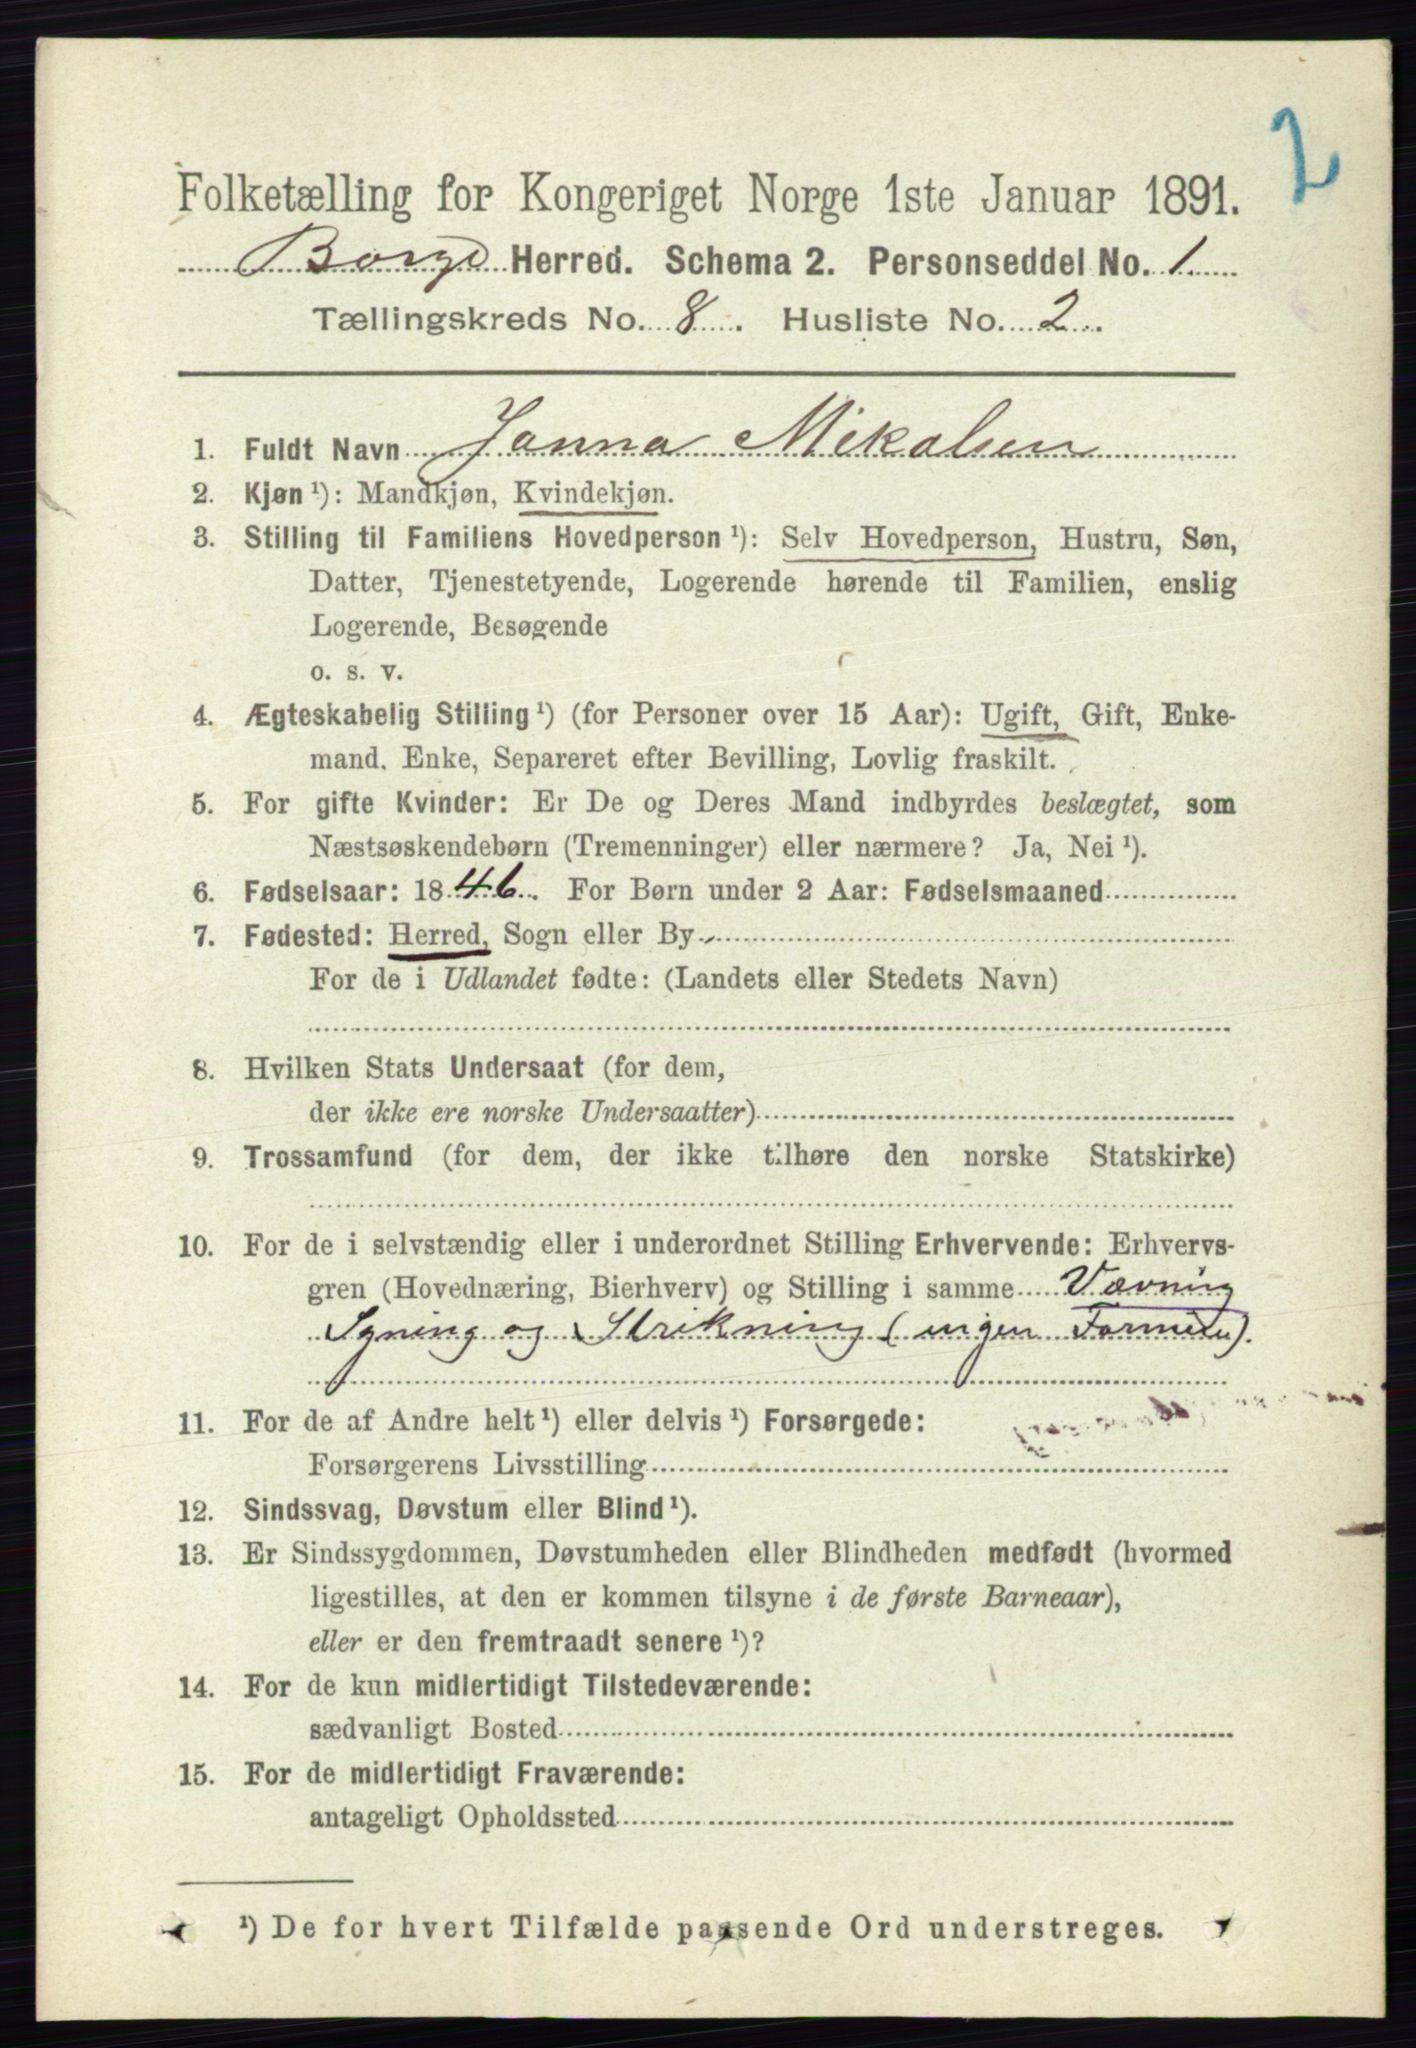 2
Folketælling for Kongeriget Norge 1ste Januar 1891.
Borge Herred. Schema 2. Personseddel No. 1
Tællingskreds No. 8. Husliste No. 2.
1. Fuldt Navn Janna Mikalsen
2. Kjøn ¹): Mandkjøn, Kvindekjøn.
3. Stilling til Familiens Hovedperson ¹): Selv Hovedperson, Hustru, Søn,
Datter, Tjenestetyende, Logerende hørende til Familien, enslig
Logerende, Besøgende
o. s. v.
4. Ægteskabelig Stilling ¹) (for Personer over 15 Aar): Ugift, Gift, Enke-
mand, Enke, Separeret efter Bevilling, Lovlig fraskilt.
5. For gifte Kvinder: Er De og Deres Mand indbyrdes beslægtet, som
Næstsøskendebørn (Tremenninger) eller nærmere? Ja, Nei ¹).
6. Fødselsaar: 1846. For Børn under 2 Aar: Fødselsmaaned
7. Fødested: Herred, Sogn eller By
For de i Udlandet fødte: (Landets eller Stedets Navn)
8. Hvilken Stats Undersaat (for dem,
der ikke ere norske Undersaatter)
9. Trossamfund (for dem, der ikke tilhøre den norske Statskirke)
10. For de i selvstændig eller i underordnet Stilling Erhvervende: Erhvervs-
gren (Hovednæring, Bierhverv) og Stilling i samme Vævning
Syning og Strikning (ingen Formue).
11. For de af Andre helt ¹) eller delvis ¹) Forsørgede:
Forsørgerens Livsstilling
12. Sindssvag, Døvstum eller Blind ¹).
13. Er Sindssygdommen, Døvstumheden eller Blindheden medfødt (hvormed
ligestilles, at den er kommen tilsyne i de første Barneaar),
eller er den fremtraadt senere ¹)?
14. For de kun midlertidigt Tilstedeværende:
sædvanligt Bosted
15. For de midlertidigt Fraværende:
antageligt Opholdssted
¹) De for hvert Tilfælde passende Ord understreges.